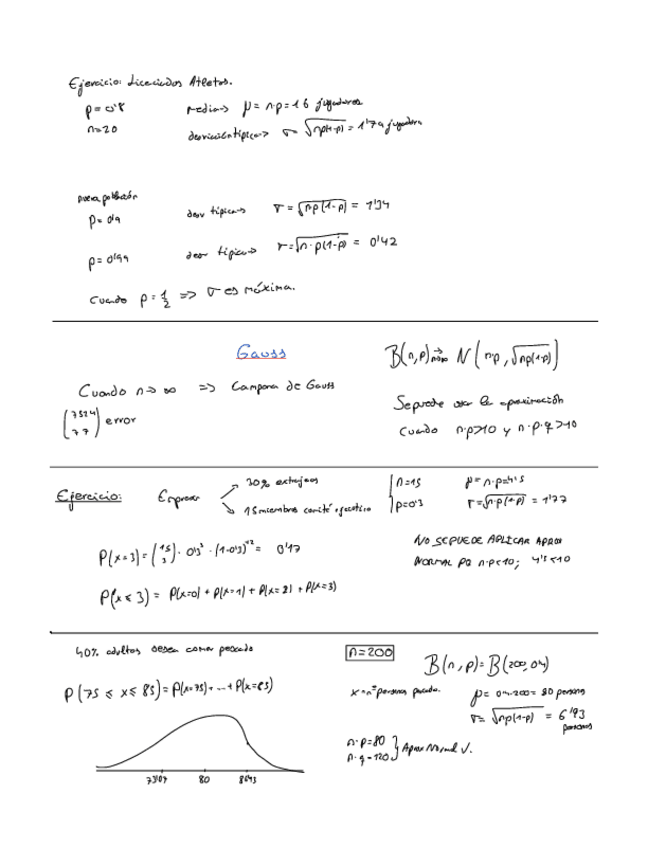 Ejercicio: Licenciados Atletas.
p = 0'8 media → μ = n·p = 16 jugadores
n = 20 desviación típica → σ √np(1-p) = 1'79 jugadora
nueva población
p = 0'9 desv típica → σ = √n·p(1-p) = 1'34
p = 0'99 desv típica → σ = √n·p(1-p) = 0'42
Cuando p = 1/2 => σ es máxima.
Gauss
B(n,p) → n→∞ N(n·p, √np(1-p))
Cuando n → ∞ => Campana de Gauss
(7524 77) error
Se puede usar la aproximación
cuando n·p>10 y n·p·q>10
Ejercicio: Empresa
30% extranjeros
15 miembros comité ejecutivo
n=15 μ = n·p = 4'5
p=0'3 σ = √n·p(1-p) = 1'77
P(x=3) = (15 3) · 0'3³ · (1-0'3)¹² = 0'17
NO SE PUEDE APLICAR APROX
NORMAL PQ n·p<10; 4'5<10
P(x ≤ 3) = P(x=0) + P(x=1) + P(x=2) + P(x=3)
40% adultos desea comer pescado
n=200
B(n,p) = B(200,04)
P(75 ≤ x ≤ 85) = P(x=75) + ... + P(x=85)
x = nº personas pescado.
μ = 04·200 = 80 persons
σ = √np(1-p) = 6'93
personas
n·p=80
n·q=120
Aprox Normal √.
73'07 80 86'93